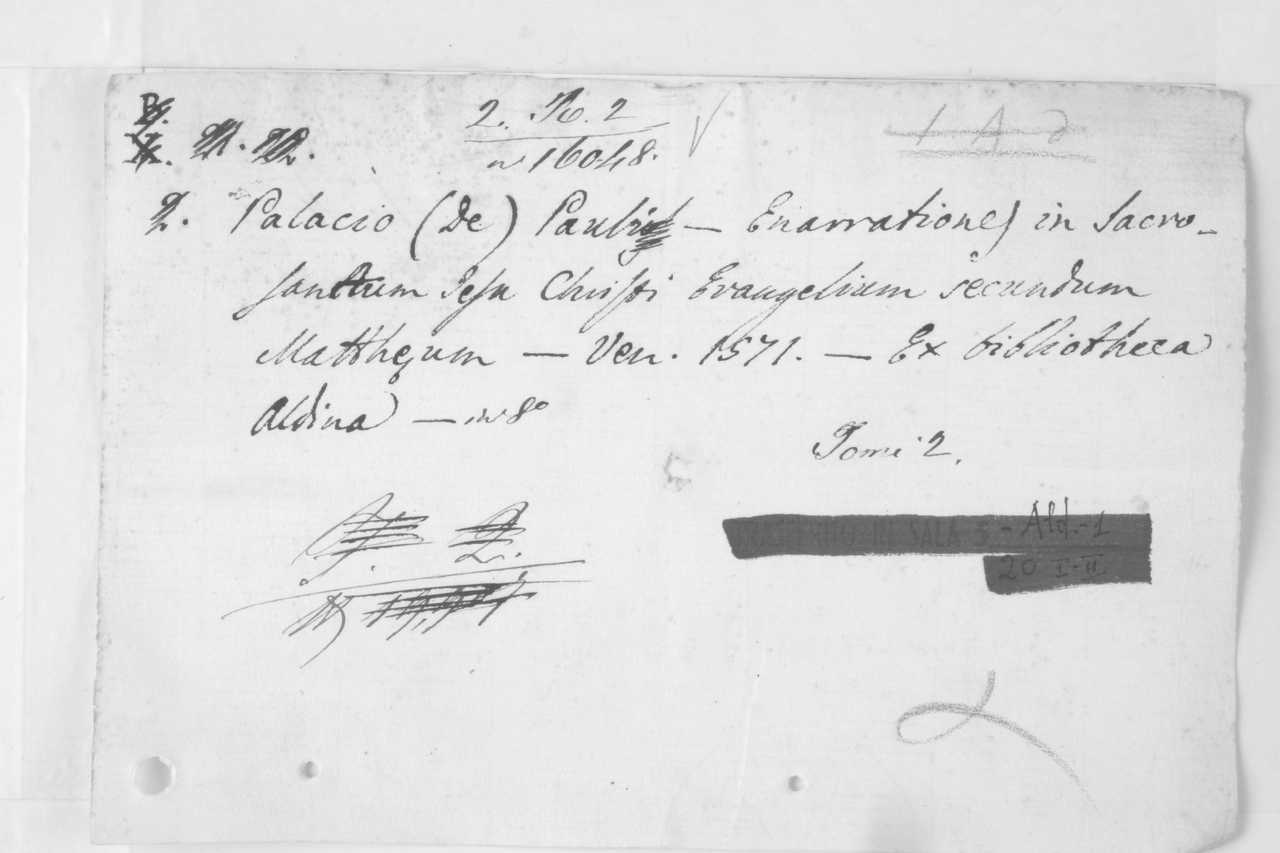 2. No. 2
n° 16048.
2. Palacio (De) Pauli — Enarrationes in Sacro-
santum Jesu Christi Evangelium secundum
Mattheum — Ven. 1571. — Ex bibliotheca
Aldina — in 8°
Tomi 2.
TRASFERITO IN SALA 5 - Ald.-1
20 I-II